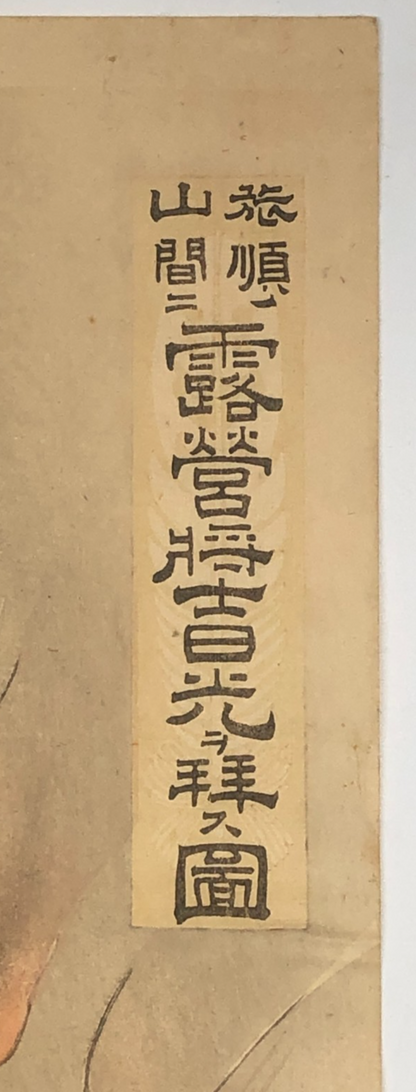 旅順ノ
山間ニ
露營將士日光ヲ拜ス圖